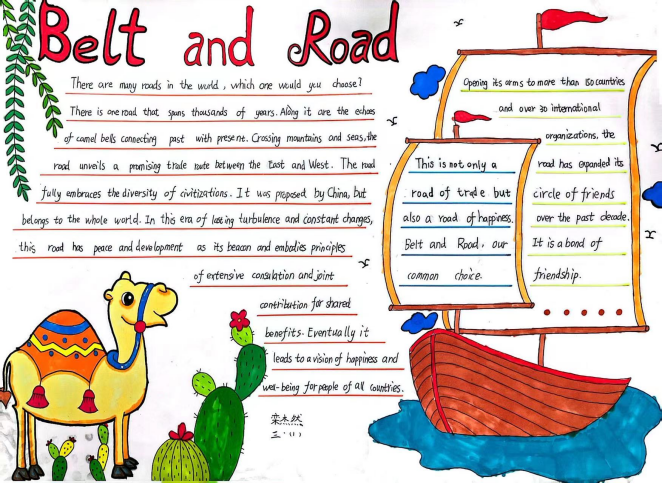 Belt and Road
There are many roads in the world, which one would you choose?
There is one road that spans thousands of years. Along it are the echoes
of camel bells connecting past with present. Crossing mountains and seas, the
road unveils a promising trade route between the East and West. The road
fully embraces the diversity of civilizations. It was proposed by China, but
belongs to the whole world. In this era of lasting turbulence and constant changes,
this road has peace and development as its beacon and embodies principles
of extensive consulation and joint
contribution for shared
benefits. Eventually it
leads to a vision of happiness and
well-being for people of all countries.
栾杰然
三·(1)
This is not only a
road of trade but
also a road of happiness.
Belt and Road, our
common choice.
Opening its arms to more than 150 countries
and over 30 international
organizations, the
road has expanded its
circle of friends
over the past decade.
It is a bond of
friendship.